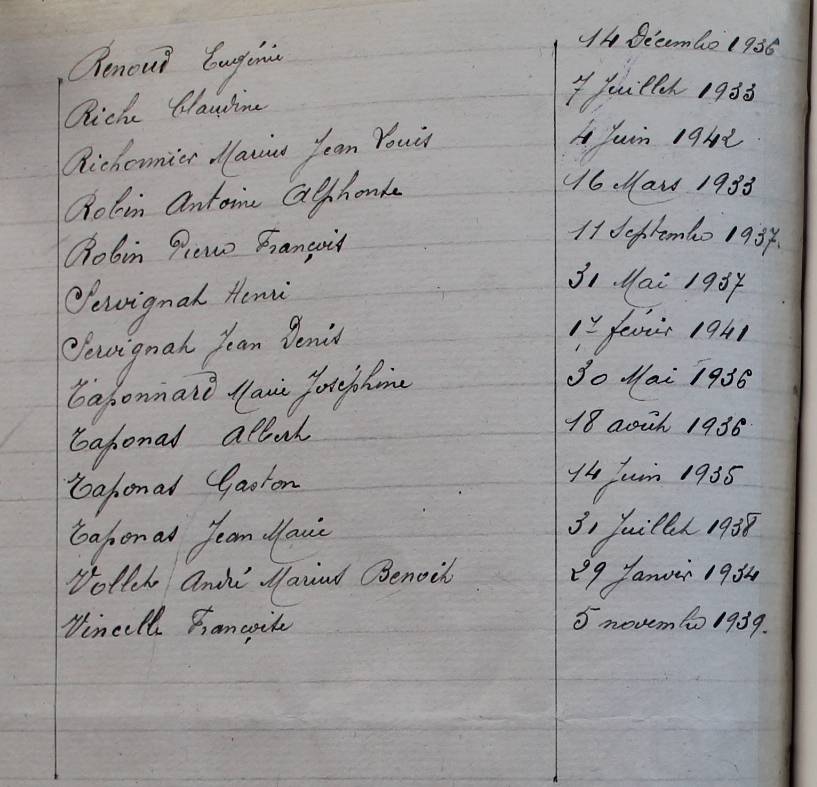 Renoud Eugénie 14 Décembre 1936
Riche Claudine 7 Juillet 1933
Richonnier Marius Jean Louis 4 Juin 1942
Robin Antoine Alphonse 16 Mars 1933
Robin Pierre François 11 Septembre 1937.
Servignat Henri 31 Mai 1937
Servignat Jean Denis 1er février 1941
Taponnard Marie Joséphine 30 Mai 1936
Taponas Albert 18 août 1936
Taponas Gaston 14 Juin 1935
Taponas Jean Marie 31 Juillet 1938
Vollet André Marius Benoit 29 Janvier 1934
Vincelle Françoise 5 novembre 1939.